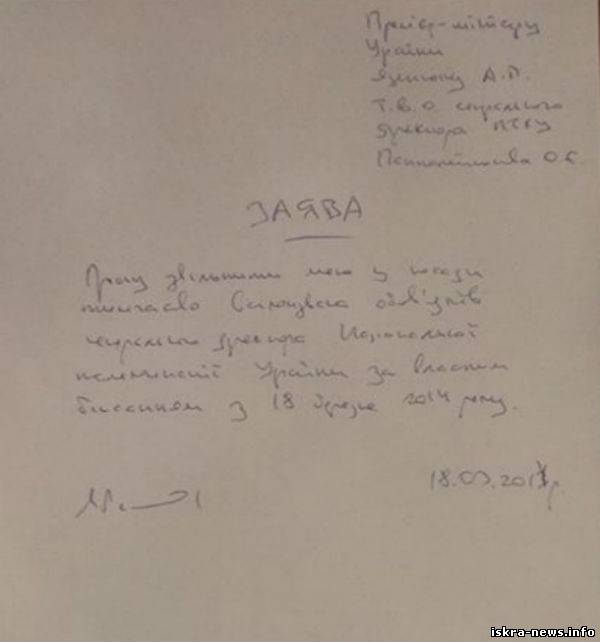 Прем'єр-міністру
України
Яценюку А.П.
Т.В.О. генерального
директора НТКУ
Пантелеймонова О.Є.
ЗАЯВА
Прошу звільнити мене з посади
тимчасово виконувача обов'язків
генерального директора Національної
телекомпанії України за власним
бажанням з 18 березня 2014 року.
18.03.2014р.
iskra-news.info